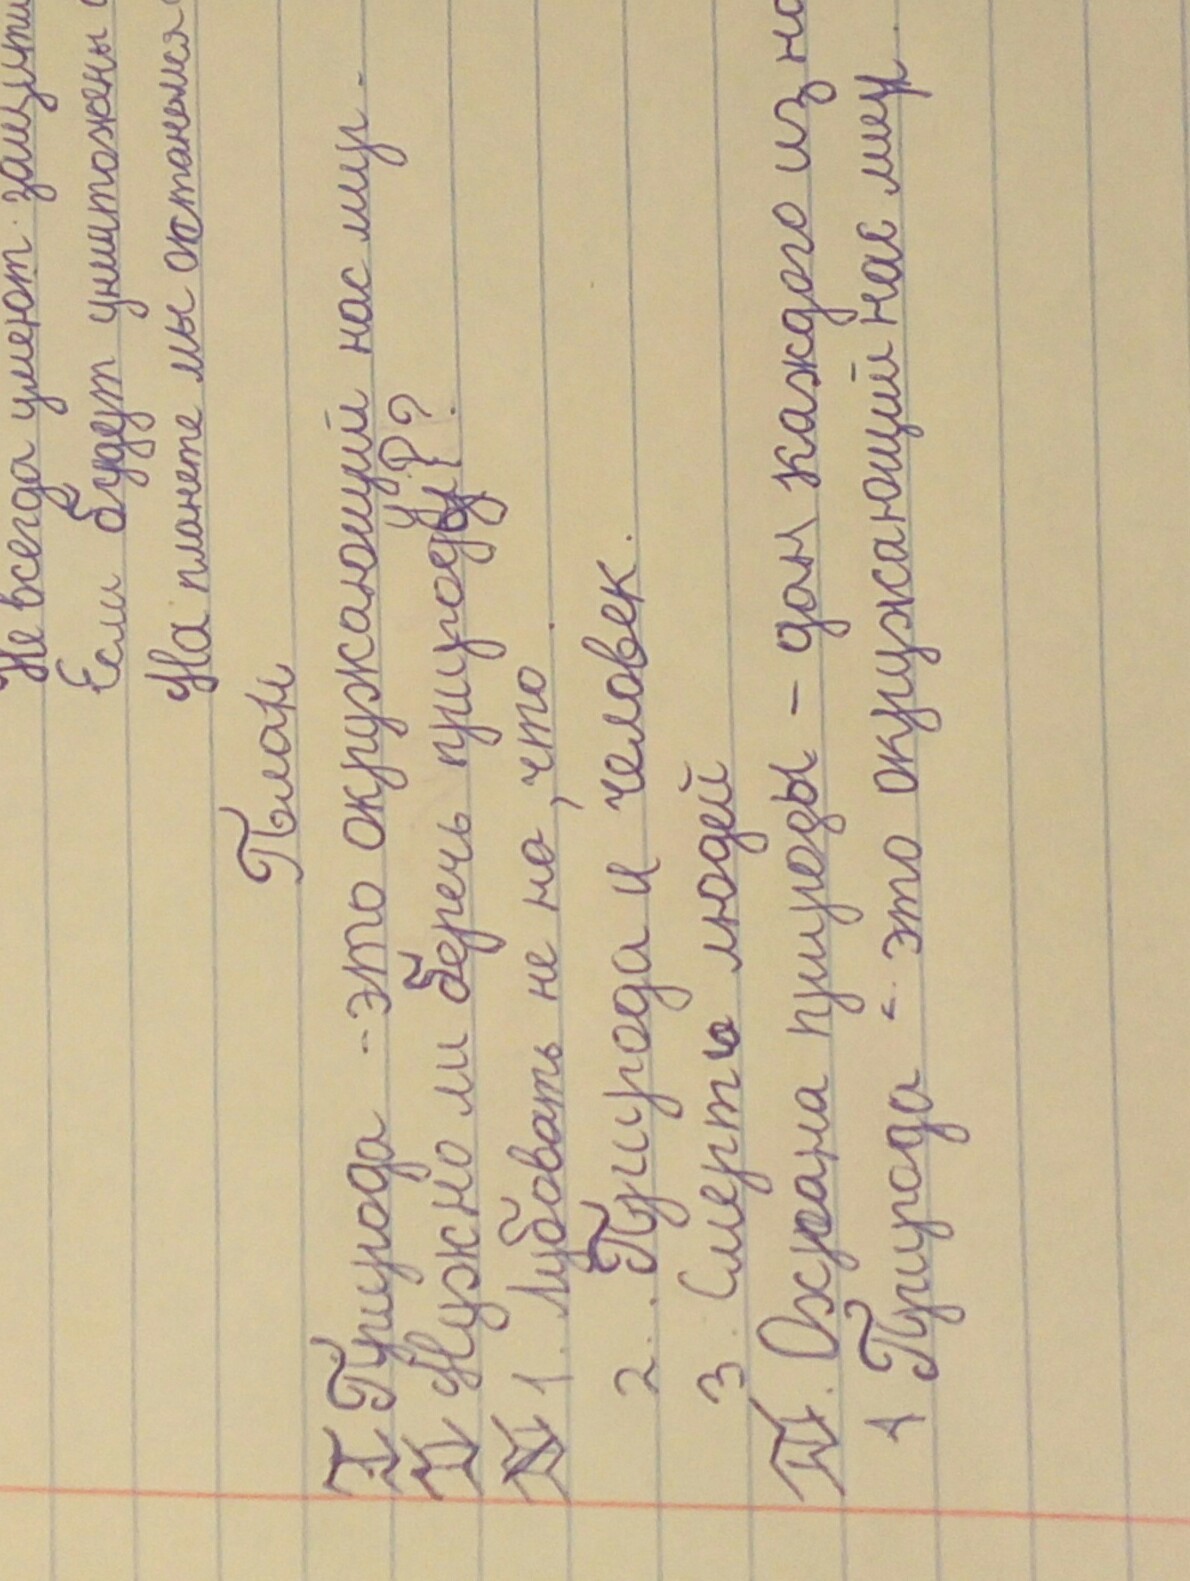 Не всегда умеют защити
Если будут уничтожены
На планете мы останемся
План
I Природа - это окружающий нас мир.
II Нужно ли беречь природу?
1. Лубовать не но, что
2. Природа и человек.
3. Смерть людей
III. Охрана природы - дан каждого из на
1 Природа - это окружающий нас мир.